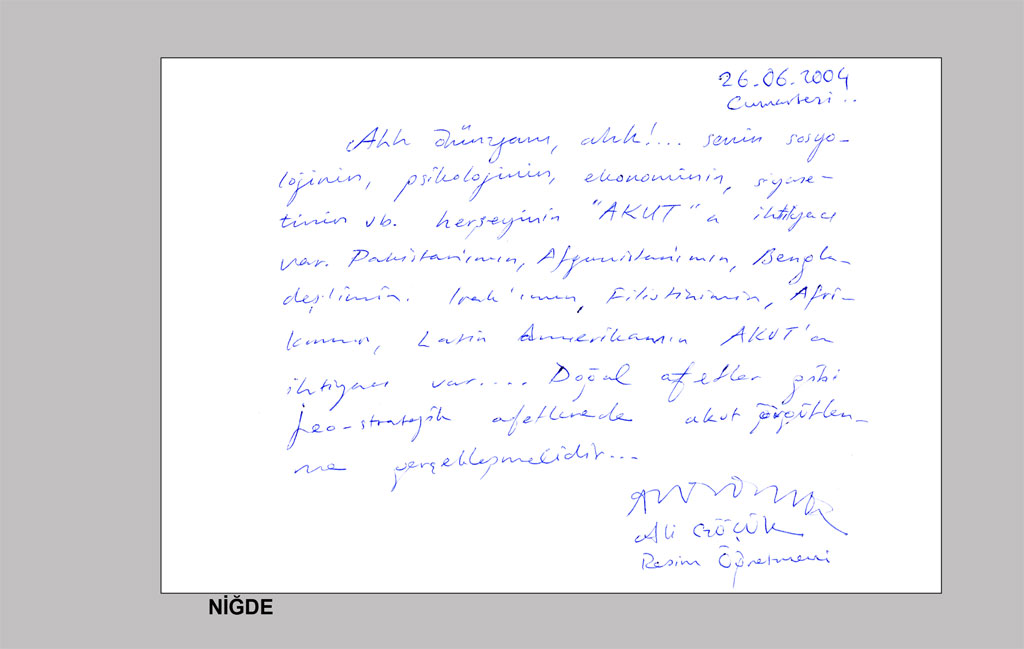 26.06.2004
Cumartesi..
Ahh Dünyam, ahh!... senin sosyo-
lojinin, psikolojinin, ekonominin, siyase-
tinin vb. herşeyinin "AKUT"a ihtiyacı
var. Pakistan'ımın, Afganistan'ımın, Bengla-
deşlimin. Irak'ımın, Filistinimin, Afri-
kamın, Latin Amerikamın AKUT'a
ihtiyacı var.... Doğal afetler gibi
jeo-stratejik afetlerede akut örgütlen-
me gerçekleşmelidir...
Ali GÖÇÜK
Resim Öğretmeni
NİĞDE